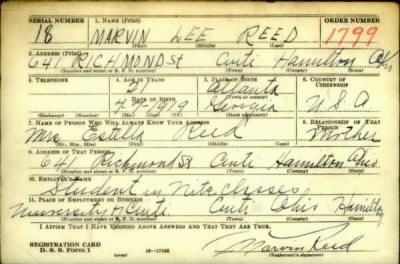 SERIAL NUMBER 1. NAME (Print) ORDER NUMBER
18 MARVIN LEE REED 1799
(First) (Middle) (Last)
2. ADDRESS (Print)
641 RICHMOND St Cinti Hamilton Ohio
(Number and street or R. F. D. number) (Town) (County) (State)
3. TELEPHONE 4. AGE IN YEARS 5. PLACE OF BIRTH 6. COUNTRY OF CITIZENSHIP
21 Atlanta
DATE OF BIRTH (Town or county)
7-7-1919 Georgia U S A
(Exchange) (Number) (Mo.) (Day) (Yr.) (State or country)
7. NAME OF PERSON WHO WILL ALWAYS KNOW YOUR ADDRESS 8. RELATIONSHIP OF THAT PERSON
Mrs Estella Reed Mother
(Mr., Mrs., Miss) (First) (Middle) (Last)
9. ADDRESS OF THAT PERSON
641 Richmond St Cinti Hamilton Ohio
(Number and street or R. F. D. number) (Town) (County) (State)
10. EMPLOYER'S NAME
Student in Nite Classes
11. PLACE OF EMPLOYMENT OR BUSINESS
University of Cinti Cinti Ohio Hamilton
(Number and street or R. F. D. number) (Town) (County) (State)
I AFFIRM THAT I HAVE VERIFIED ABOVE ANSWERS AND THAT THEY ARE TRUE.
REGISTRATION CARD
D. S. S. Form 1 16-17105 Marvin Reed
(Registrant's signature)